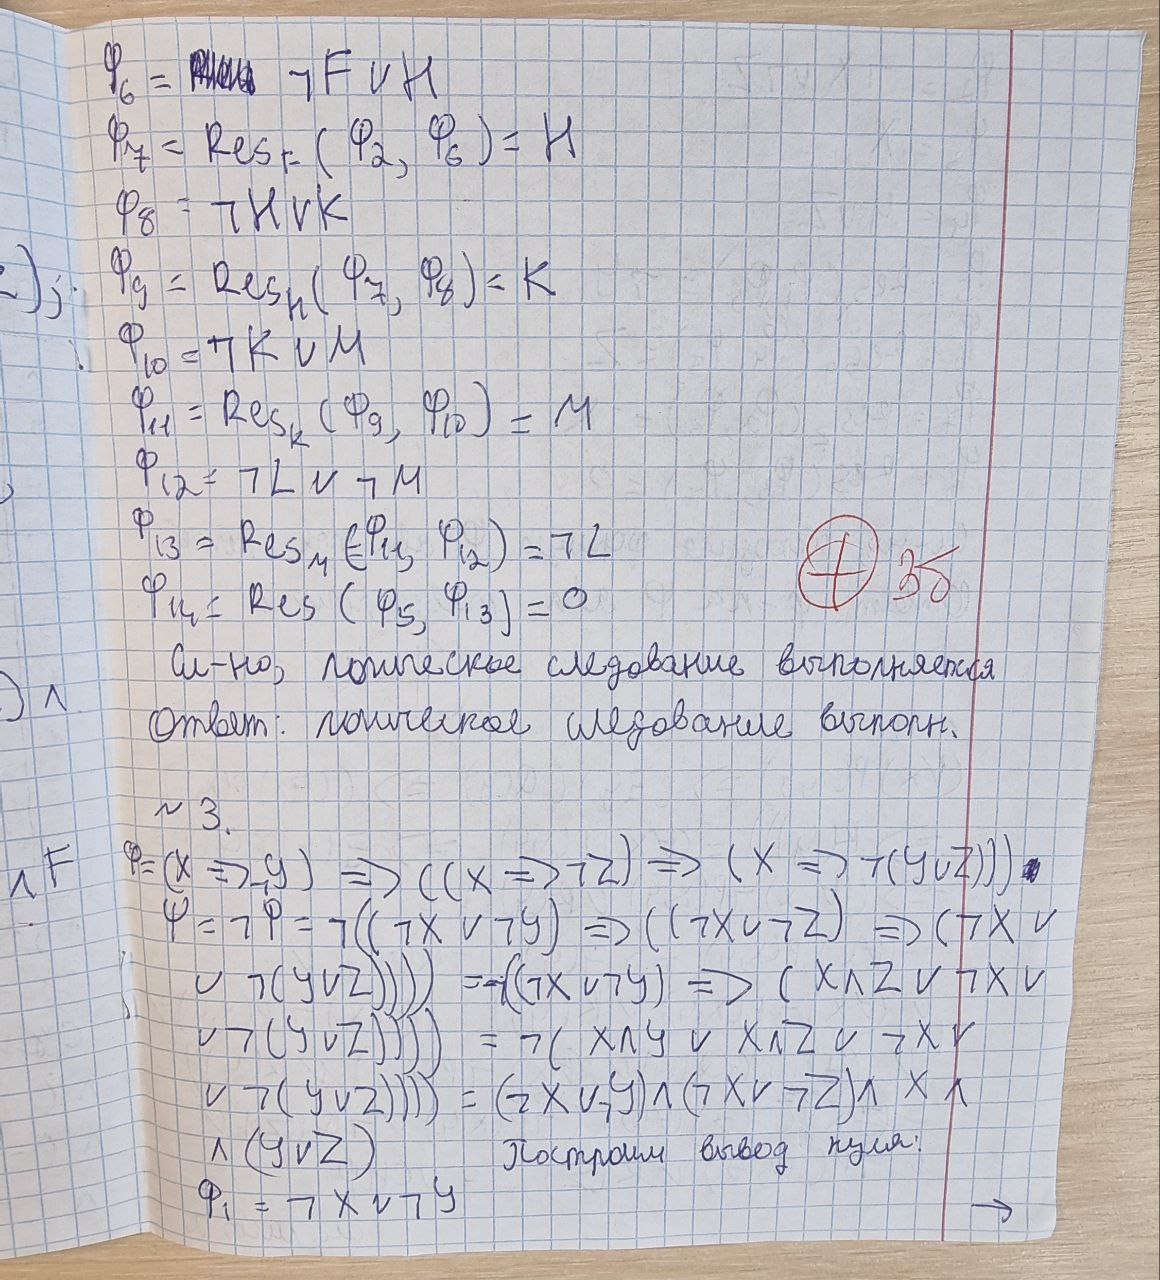 φ₆ = ¬F ∨ H
φ₇ = Res_F (φ₂, φ₆) = H
φ₈ = ¬H ∨ K
2);
φ₉ = Res_H (φ₇, φ₈) = K
φ₁₀ = ¬K ∨ M
φ₁₁ = Res_K (φ₉, φ₁₀) = M
φ₁₂ = ¬L ∨ ¬M
φ₁₃ = Res_M (φ₁₁, φ₁₂) = ¬L
φ₁₄ = Res (φ₅, φ₁₃) = 0
+ 3б
Сл-но, логическое следование выполняется
) ∧
Ответ: логическое следование выполн.
~ 3.
φ = (X => ¬Y) => ((X => ¬Z) => (X => ¬(Y∨Z)))
∧ F
Ψ = ¬φ = ¬((¬X ∨ ¬Y) => ((¬X ∨ ¬Z) => (¬X ∨
∨ ¬(Y∨Z)))) = ¬((¬X ∨ ¬Y) => (X∧Z ∨ ¬X ∨
∨ ¬(Y∨Z)))) = ¬(X∧Y ∨ X∧Z ∨ ¬X ∨
∨ ¬(Y∨Z)))) = (¬X ∨ ¬Y) ∧ (¬X ∨ ¬Z) ∧ X ∧
∧ (Y∨Z) Построим вывод нуля:
φ₁ = ¬X ∨ ¬Y →